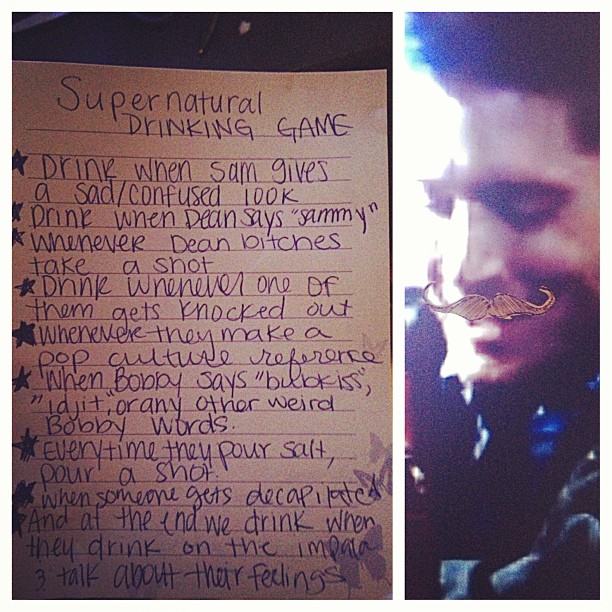 Supernatural
DRINKING GAME
★ Drink when Sam gives
a sad/confused look
★ Drink when Dean says "sammy"
★ Whenever Dean bitches
take a shot
★ Drink whenever one of
them gets knocked out
★ Whenever they make a
pop culture reference
★ When Bobby says "bubkiss",
"idjit", or any other weird
Bobby words.
★ Everytime they pour salt,
pour a shot.
★ when someone gets decapitated
★ And at the end we drink when
they drink on the impala
& talk about their feelings